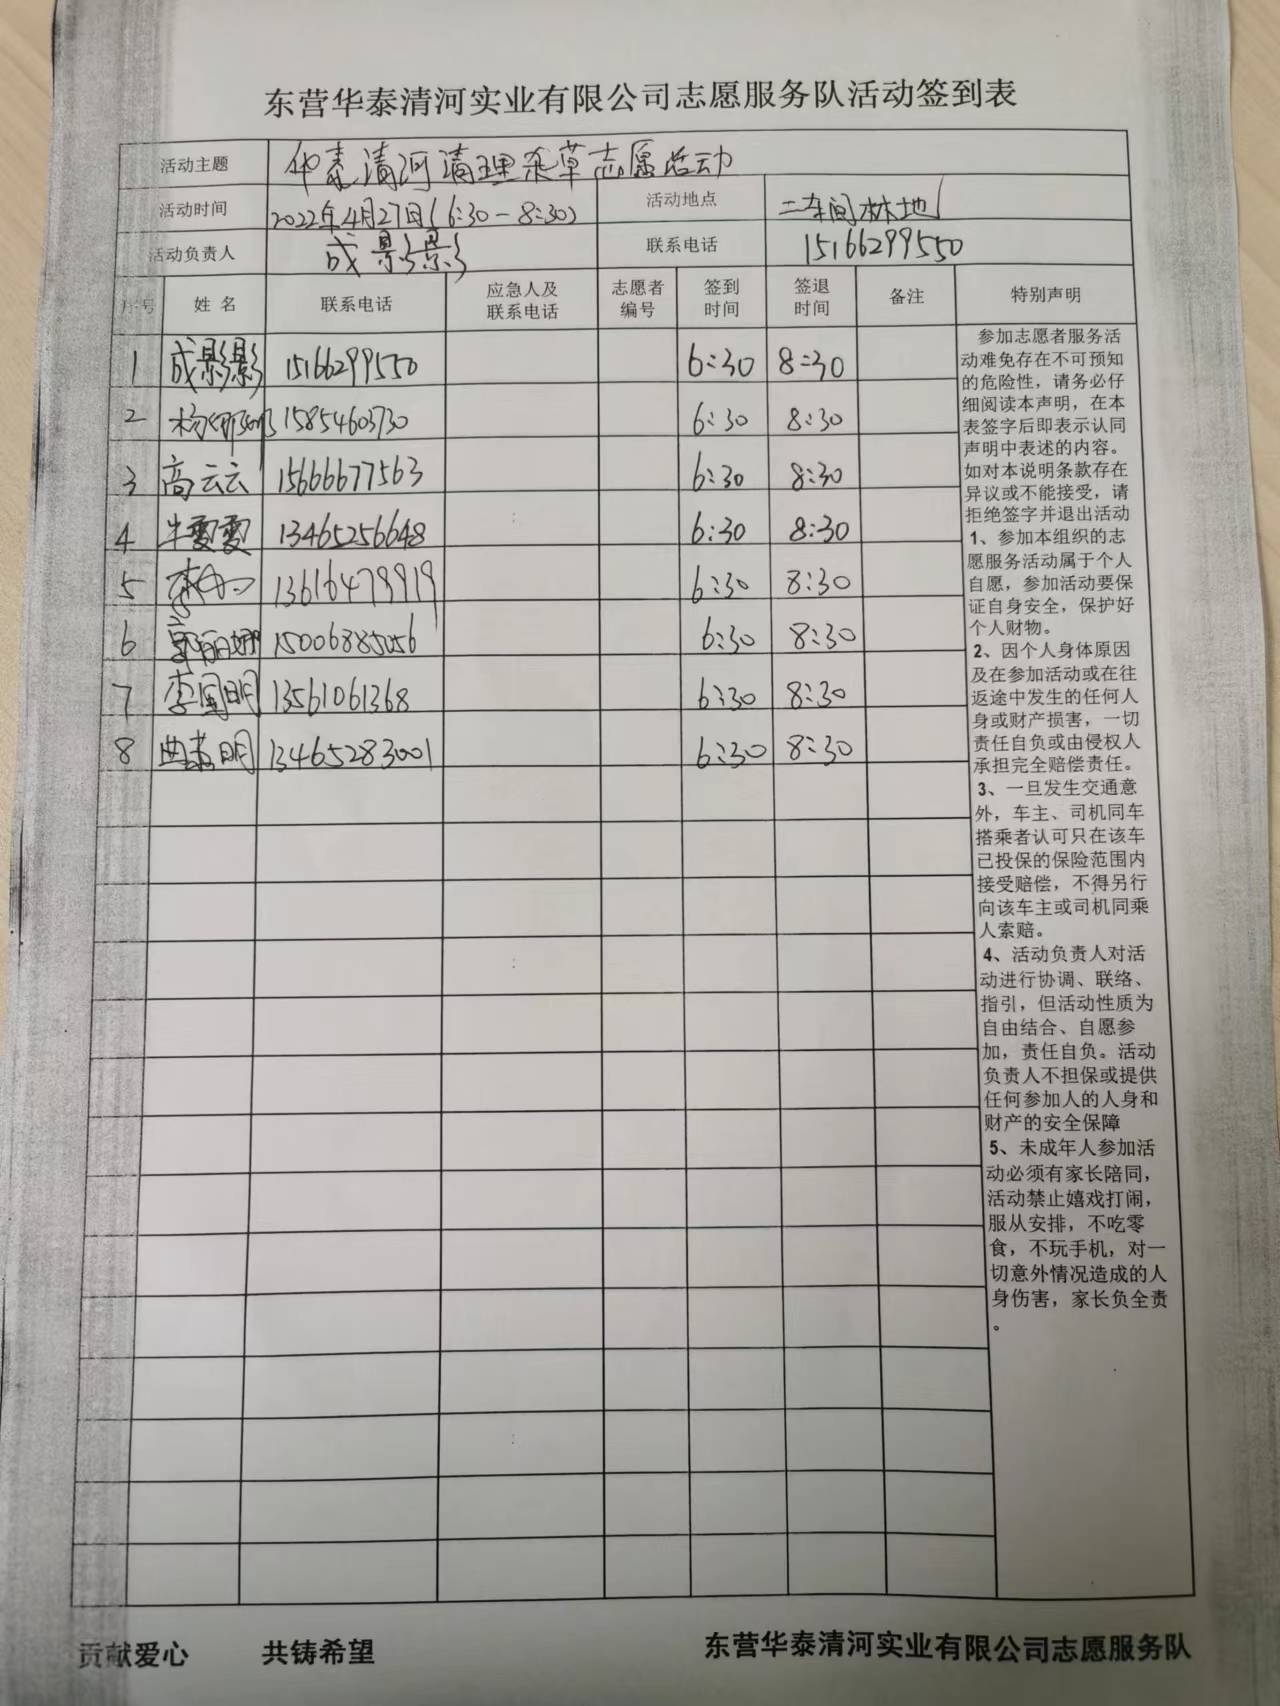 东营华泰清河实业有限公司志愿服务队活动签到表
活动主题 华泰清河清理杂草志愿活动
活动时间 2022年4月27日(6:30-8:30) 活动地点 二车间林地
活动负责人 成影影 联系电话 15166299550
序号 姓名 联系电话 应急人及联系电话 志愿者编号 签到时间 签退时间 备注 特别声明
1 成影影 15166299550 6:30 8:30
2 杨娜娜 15854603730 6:30 8:30
3 高云云 15666677563 6:30 8:30
4 牛雯雯 13465256648 6:30 8:30
5 13616479919 6:30 8:30
6 郭丽娜 15006885056 6:30 8:30
7 李国明 13561061368 6:30 8:30
8 曲 明 13465283001 6:30 8:30
参加志愿者服务活
动难免存在不可预知
的危险性，请务必仔
细阅读本声明，在本
表签字后即表示认同
声明中表述的内容。
如对本说明条款存在
异议或不能接受，请
拒绝签字并退出活动
1、参加本组织的志
愿服务活动属于个人
自愿，参加活动要保
证自身安全，保护好
个人财物。
2、因个人身体原因
及在参加活动或在往
返途中发生的任何人
身或财产损害，一切
责任自负或由侵权人
承担完全赔偿责任。
3、一旦发生交通意
外，车主、司机同车
搭乘者认可只在该车
已投保的保险范围内
接受赔偿，不得另行
向该车主或司机同乘
人索赔。
4、活动负责人对活
动进行协调、联络、
指引，但活动性质为
自由结合、自愿参
加，责任自负。活动
负责人不担保或提供
任何参加人的人身和
财产的安全保障
5、未成年人参加活
动必须有家长陪同，
活动禁止嬉戏打闹，
服从安排，不吃零
食，不玩手机，对一
切意外情况造成的人
身伤害，家长负全责
。
贡献爱心 共铸希望 东营华泰清河实业有限公司志愿服务队